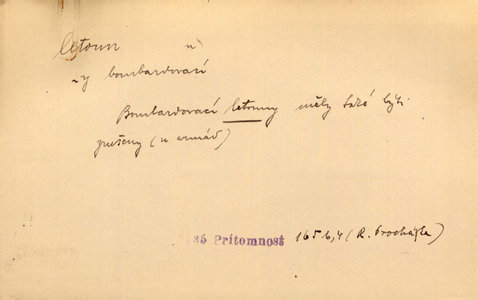 letoun
~y bombardovací
Bombardovací letouny měly také býti
(u armád)
35 Přítomnost 165 b, 4 (R. Procházka)